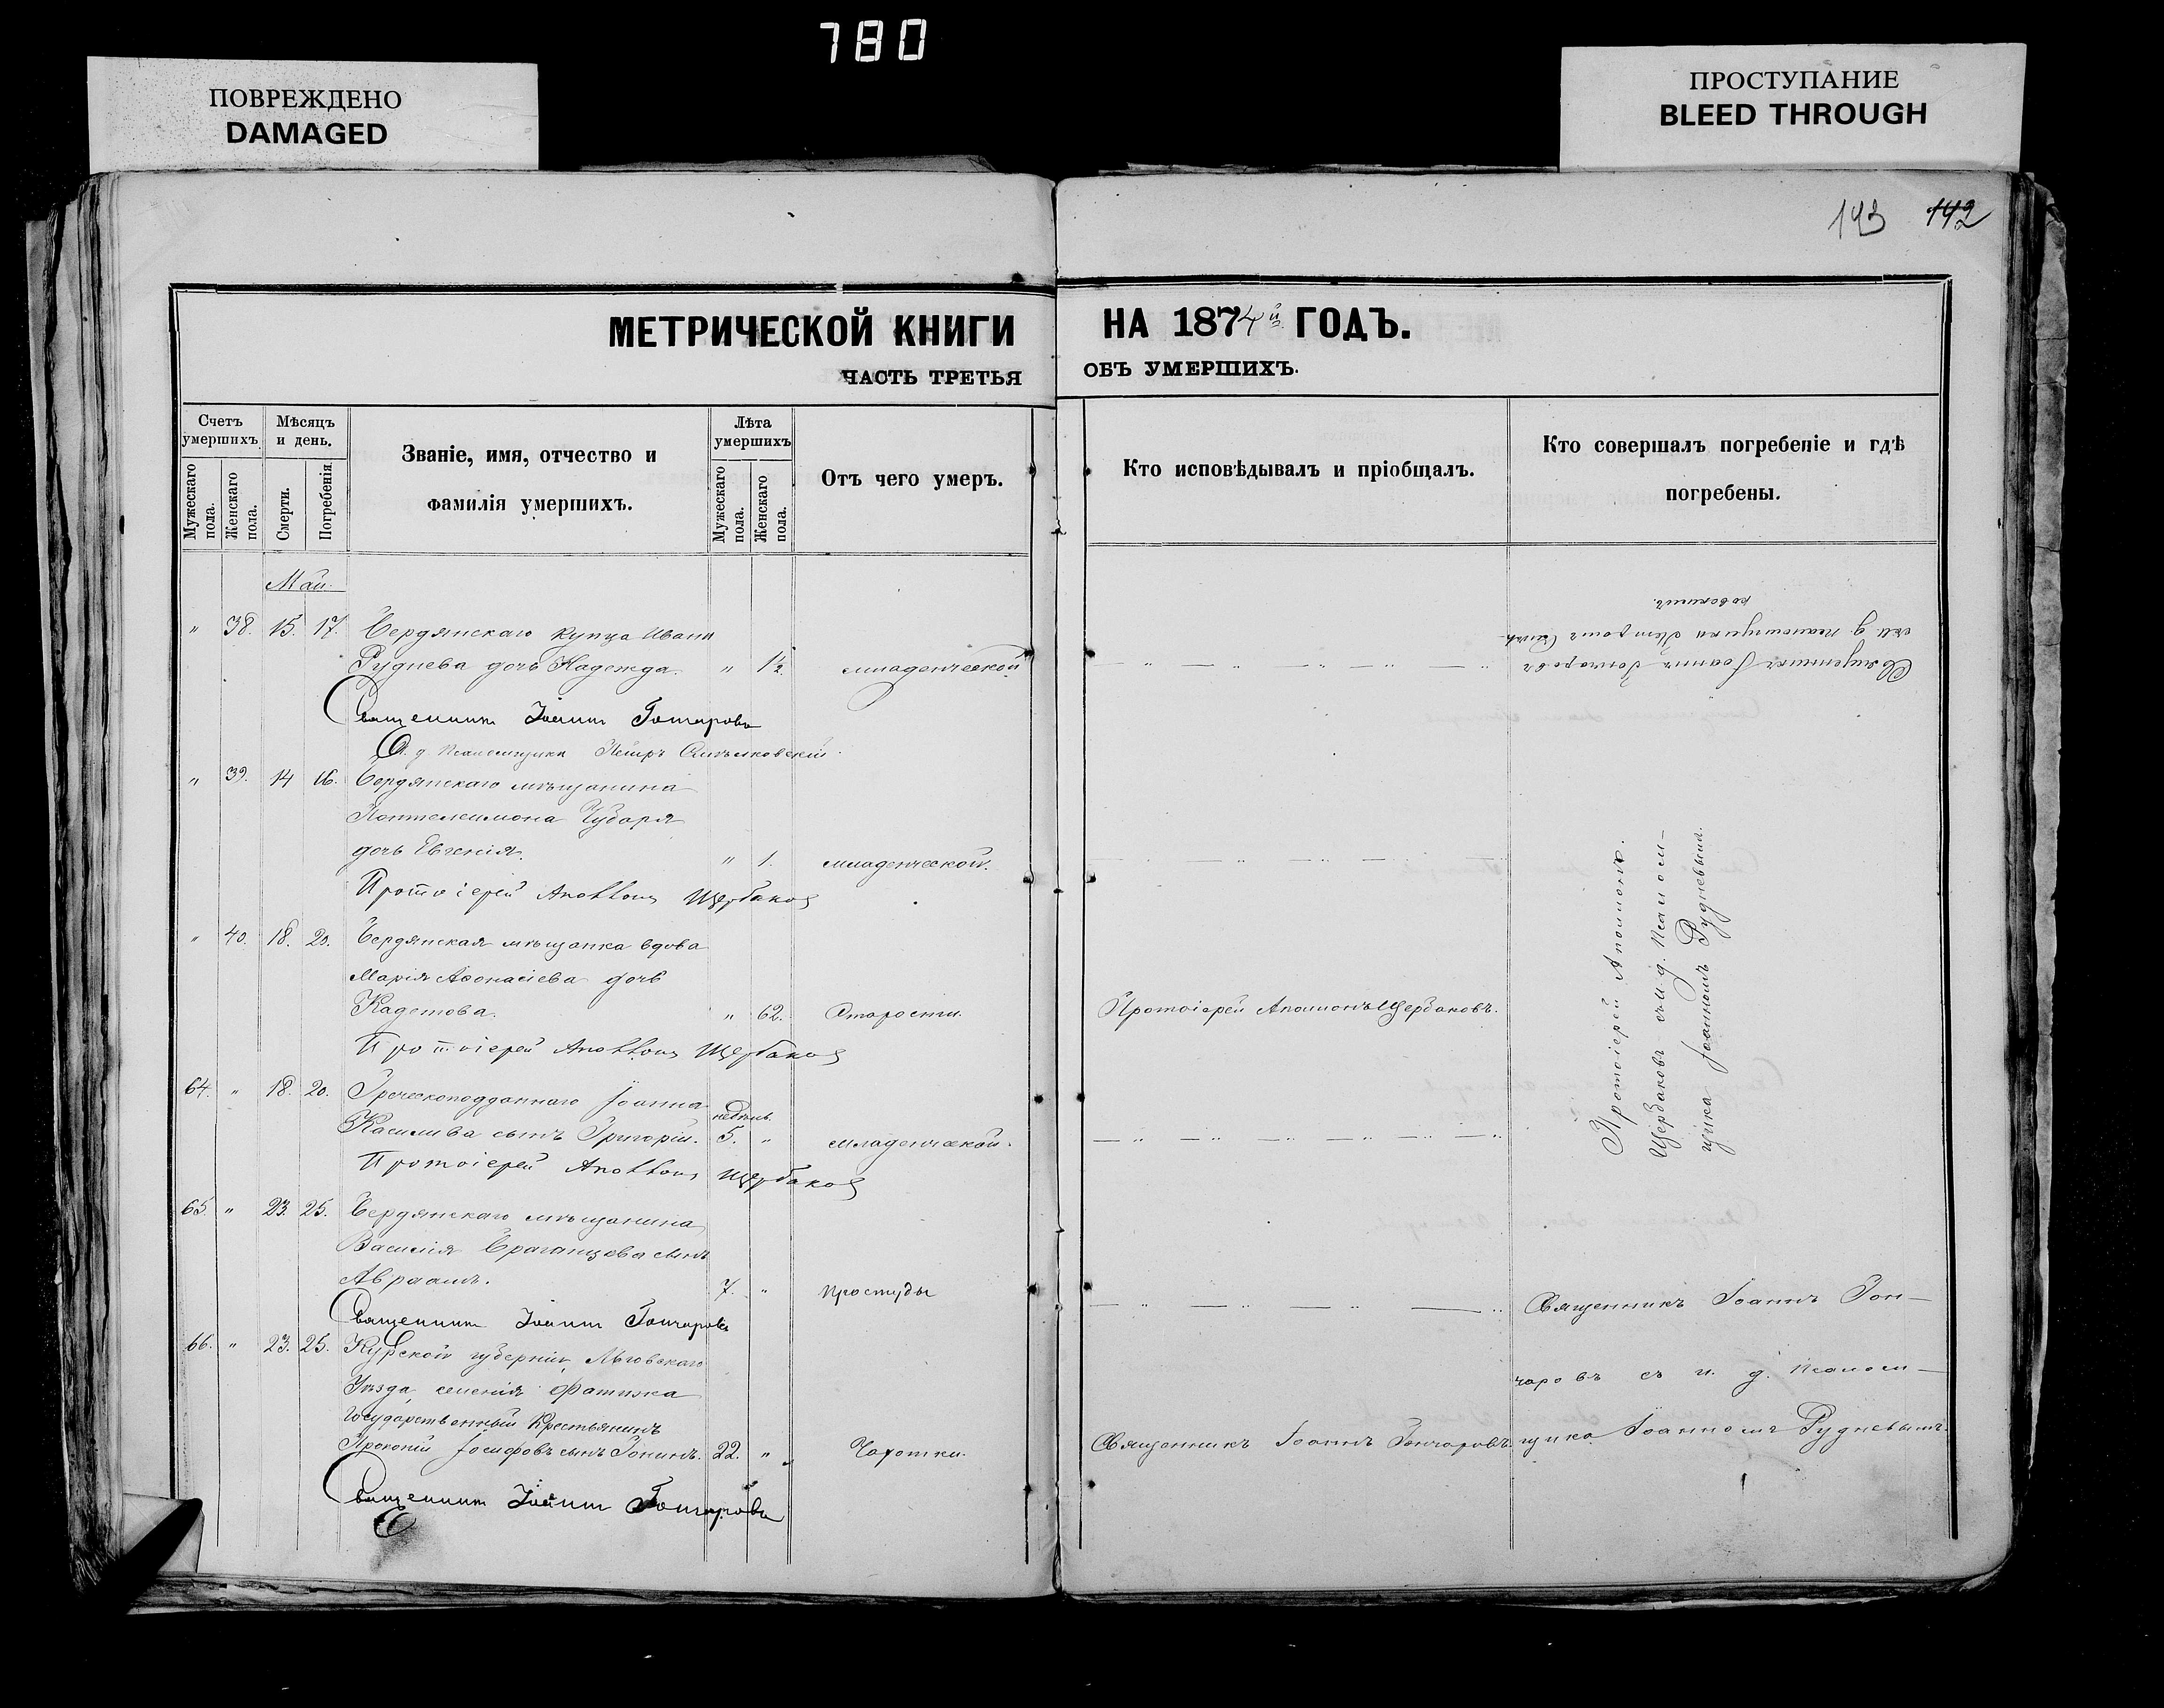 780
ПОВРЕЖДЕНО
DAMAGED
ПРОСТУПАНИЕ
BLEED THROUGH
143 142
МЕТРИЧЕСКОЙ КНИГИ
ЧАСТЬ ТРЕТЬЯ
НА 1874й ГОДЪ.
ОБЪ УМЕРШИХЪ.
Счетъ умершихъ.
Мужескаго пола.
Женскаго пола.
Мѣсяцъ и день.
Смерти.
Погребенія.
Званіе, имя, отчество и
фамилія умершихъ.
Лѣта умершихъ
Мужескаго пола.
Женскаго пола.
Отъ чего умеръ.
Кто исповѣдывалъ и пріобщалъ.
Кто совершалъ погребеніе и гдѣ
погребены.
Май.
" 38. 15. 17. Бердянскаго купца Ивана
Руднева дочь Надежда. " 1½ младенческой
Священникъ Іоаннъ Гончаровъ
съ и. д. псаломщика Петромъ
Священникъ Іоаннъ Гончаровъ
И. д. Псаломщика Петръ
" 39. 14 16. Бердянскаго мѣщанина
Пантелеимона Чубаря
дочь Евгенія. " 1. младенческой.
Протоіерей Аполлонъ Щербаковъ
" 40. 18. 20. Бердянская мѣщанка вдова
Марія Аѳонасіева дочь
Кадетова. " 62. Старости. Протоіерей Аполлонъ Щербаковъ.
Протоіерей Аполлонъ Щербаковъ
64. " 18. 20. Греческоподданнаго Іоанна
недѣль
сынъ Григорій. 5. " младенческой.
Протоіерей Аполлонъ Щербаковъ
Протоіерей Аполлонъ
Щербаковъ съ и. д. Псалом-
щика Іоанномъ Рудневымъ.
65. " 23. 25. Бердянскаго мѣщанина
Василія сынъ
Авраамъ. 7. " Простуды
Священникъ Іоаннъ Гончаровъ
66. " 23. 25. Курской губерніи, Льговскаго
Уѣзда, селенія Фатижа
Государственный Крестьянинъ
Прокопій Іосифовъ сынъ 22. " Чахотки. Священникъ Іоаннъ Гончаровъ.
Священникъ Іоаннъ Гон-
чаровъ съ и. д. Псалом-
щика Іоанномъ Рудневымъ.
Священникъ Іоаннъ Гончаровъ